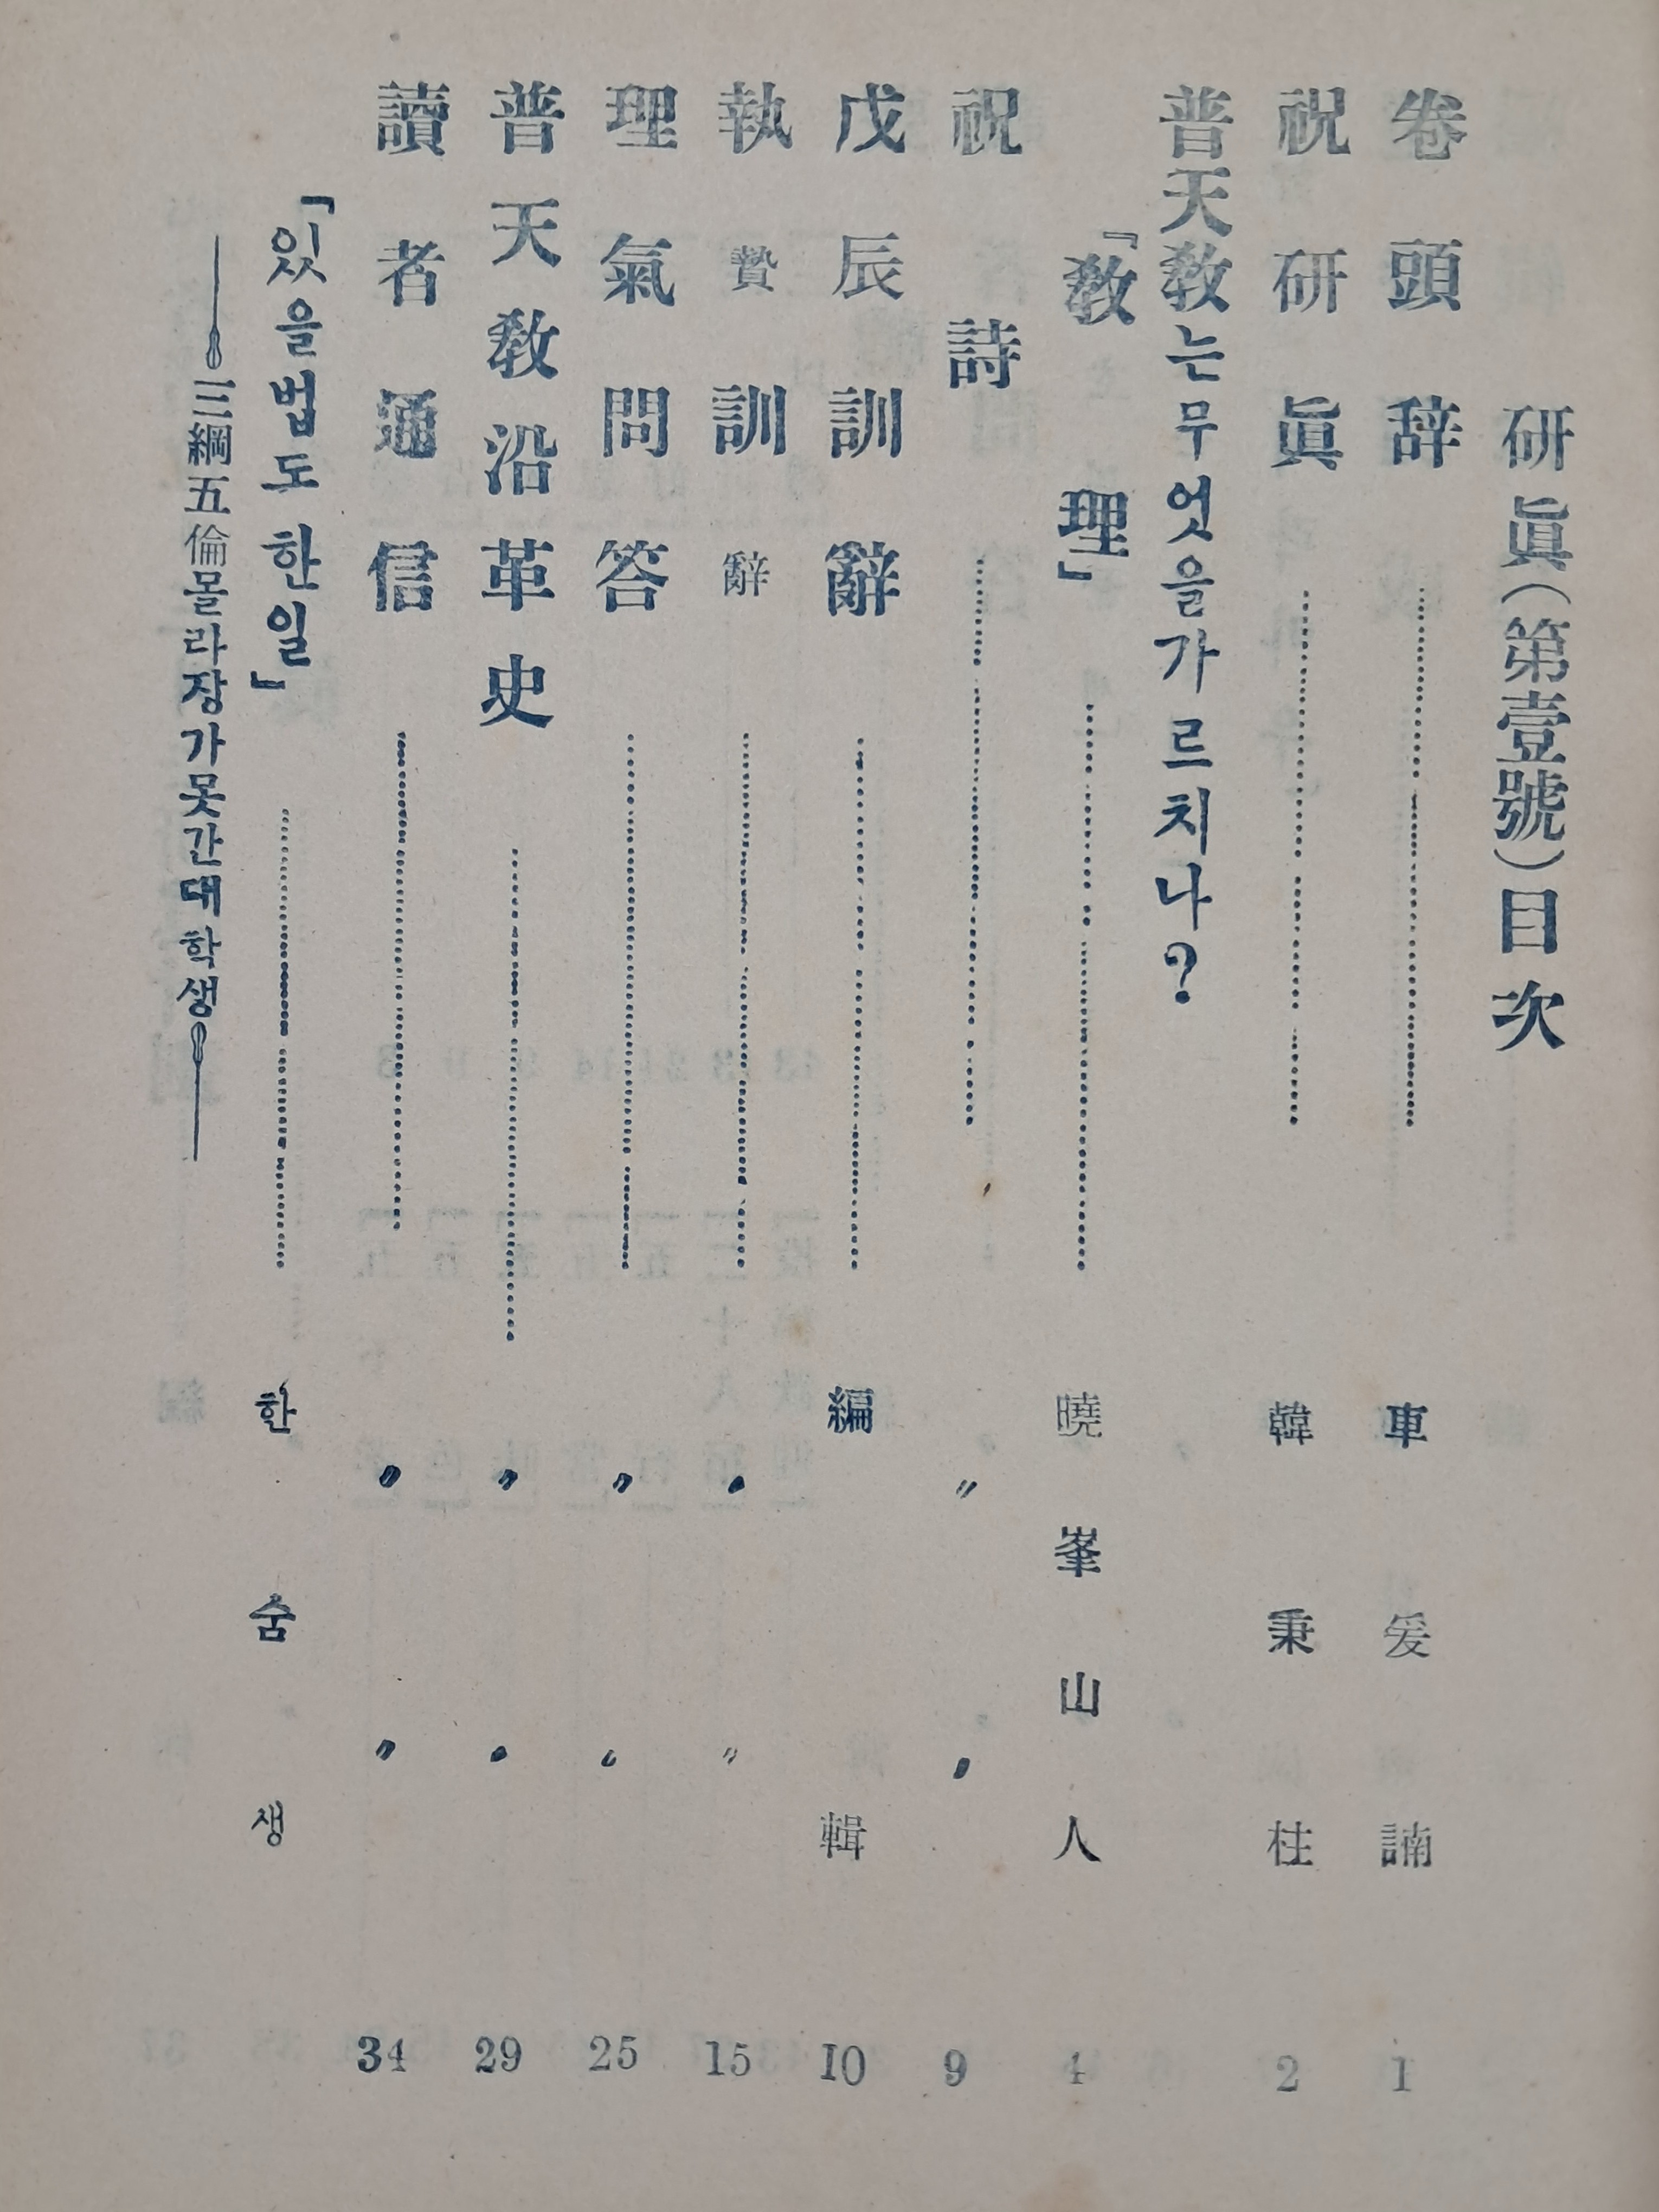 研眞(第壹號)目次
卷頭辞……車爰誧 1
祝研眞……韓秉柱 2
普天敎는무엇을가르치나?
「敎理」……曉峯山人 4
祝詩……〃〃 9
戊辰訓辭……編輯 10
執贄訓辭……〃〃 15
理氣問答……〃〃 25
普天敎沿革史……〃〃 29
讀者通信……〃〃 34
「있을법도한일」……한숨생
三綱五倫몰라장가못간대학생